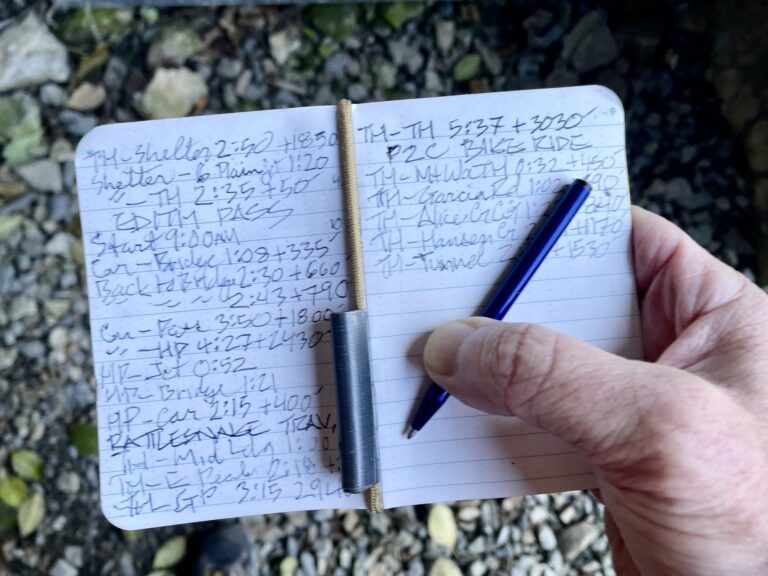 TH-Shelter 2:50 +1850
Shelter-6 Plain jt 1:20
" - TH 2:35 +50
EDITH PASS
Start 9:00AM
Car-Bridge 1:08 +335
Back to Bridge 2:30 +660
" " " 2:43 +790
Car-Pass 3:50 +1800
" -HP 4:27 +2430
HP-Jct 0:52
HP-Bridge 1:21
HP-Car 2:15 +400
RATTLESNAKE TRAV.
TH-Mid Ldg
TH-E Peak 2:18
TH-GP 3:15 294
TH-TH 5:37 +3030
P2C BIKE RIDE
TH-Mt Wa TH 0:32 +450
TH-Garcia Rd
TH-Alice Cr CG
TH-Hansen Cr +1170
TH-Tunnel +1530